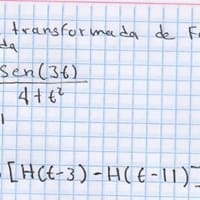 transformada de F
da
sen(3t)
4+t²
[H(t-3)-H(t-11)]